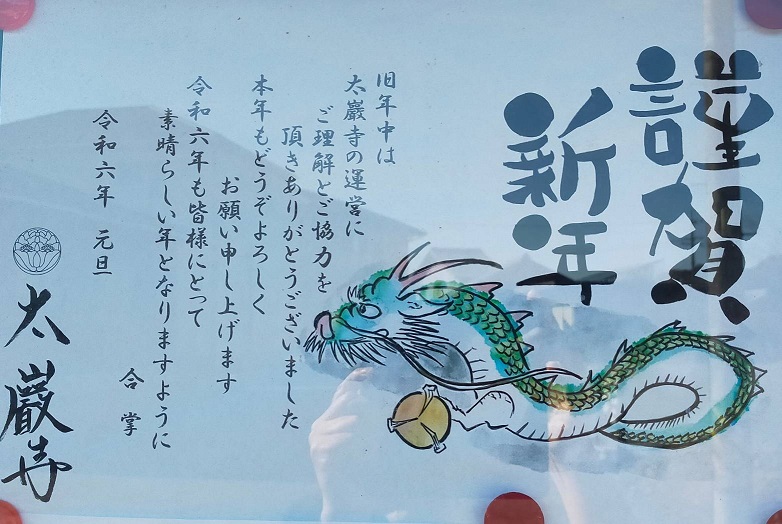 謹賀
新年
旧年中は
太巖寺の運営に
ご理解とご協力を
頂きありがとうございました
本年もどうぞよろしく
お願い申し上げます
令和六年も皆様にとって
素晴らしい年となりますように
合掌
令和六年 元旦
太巖寺